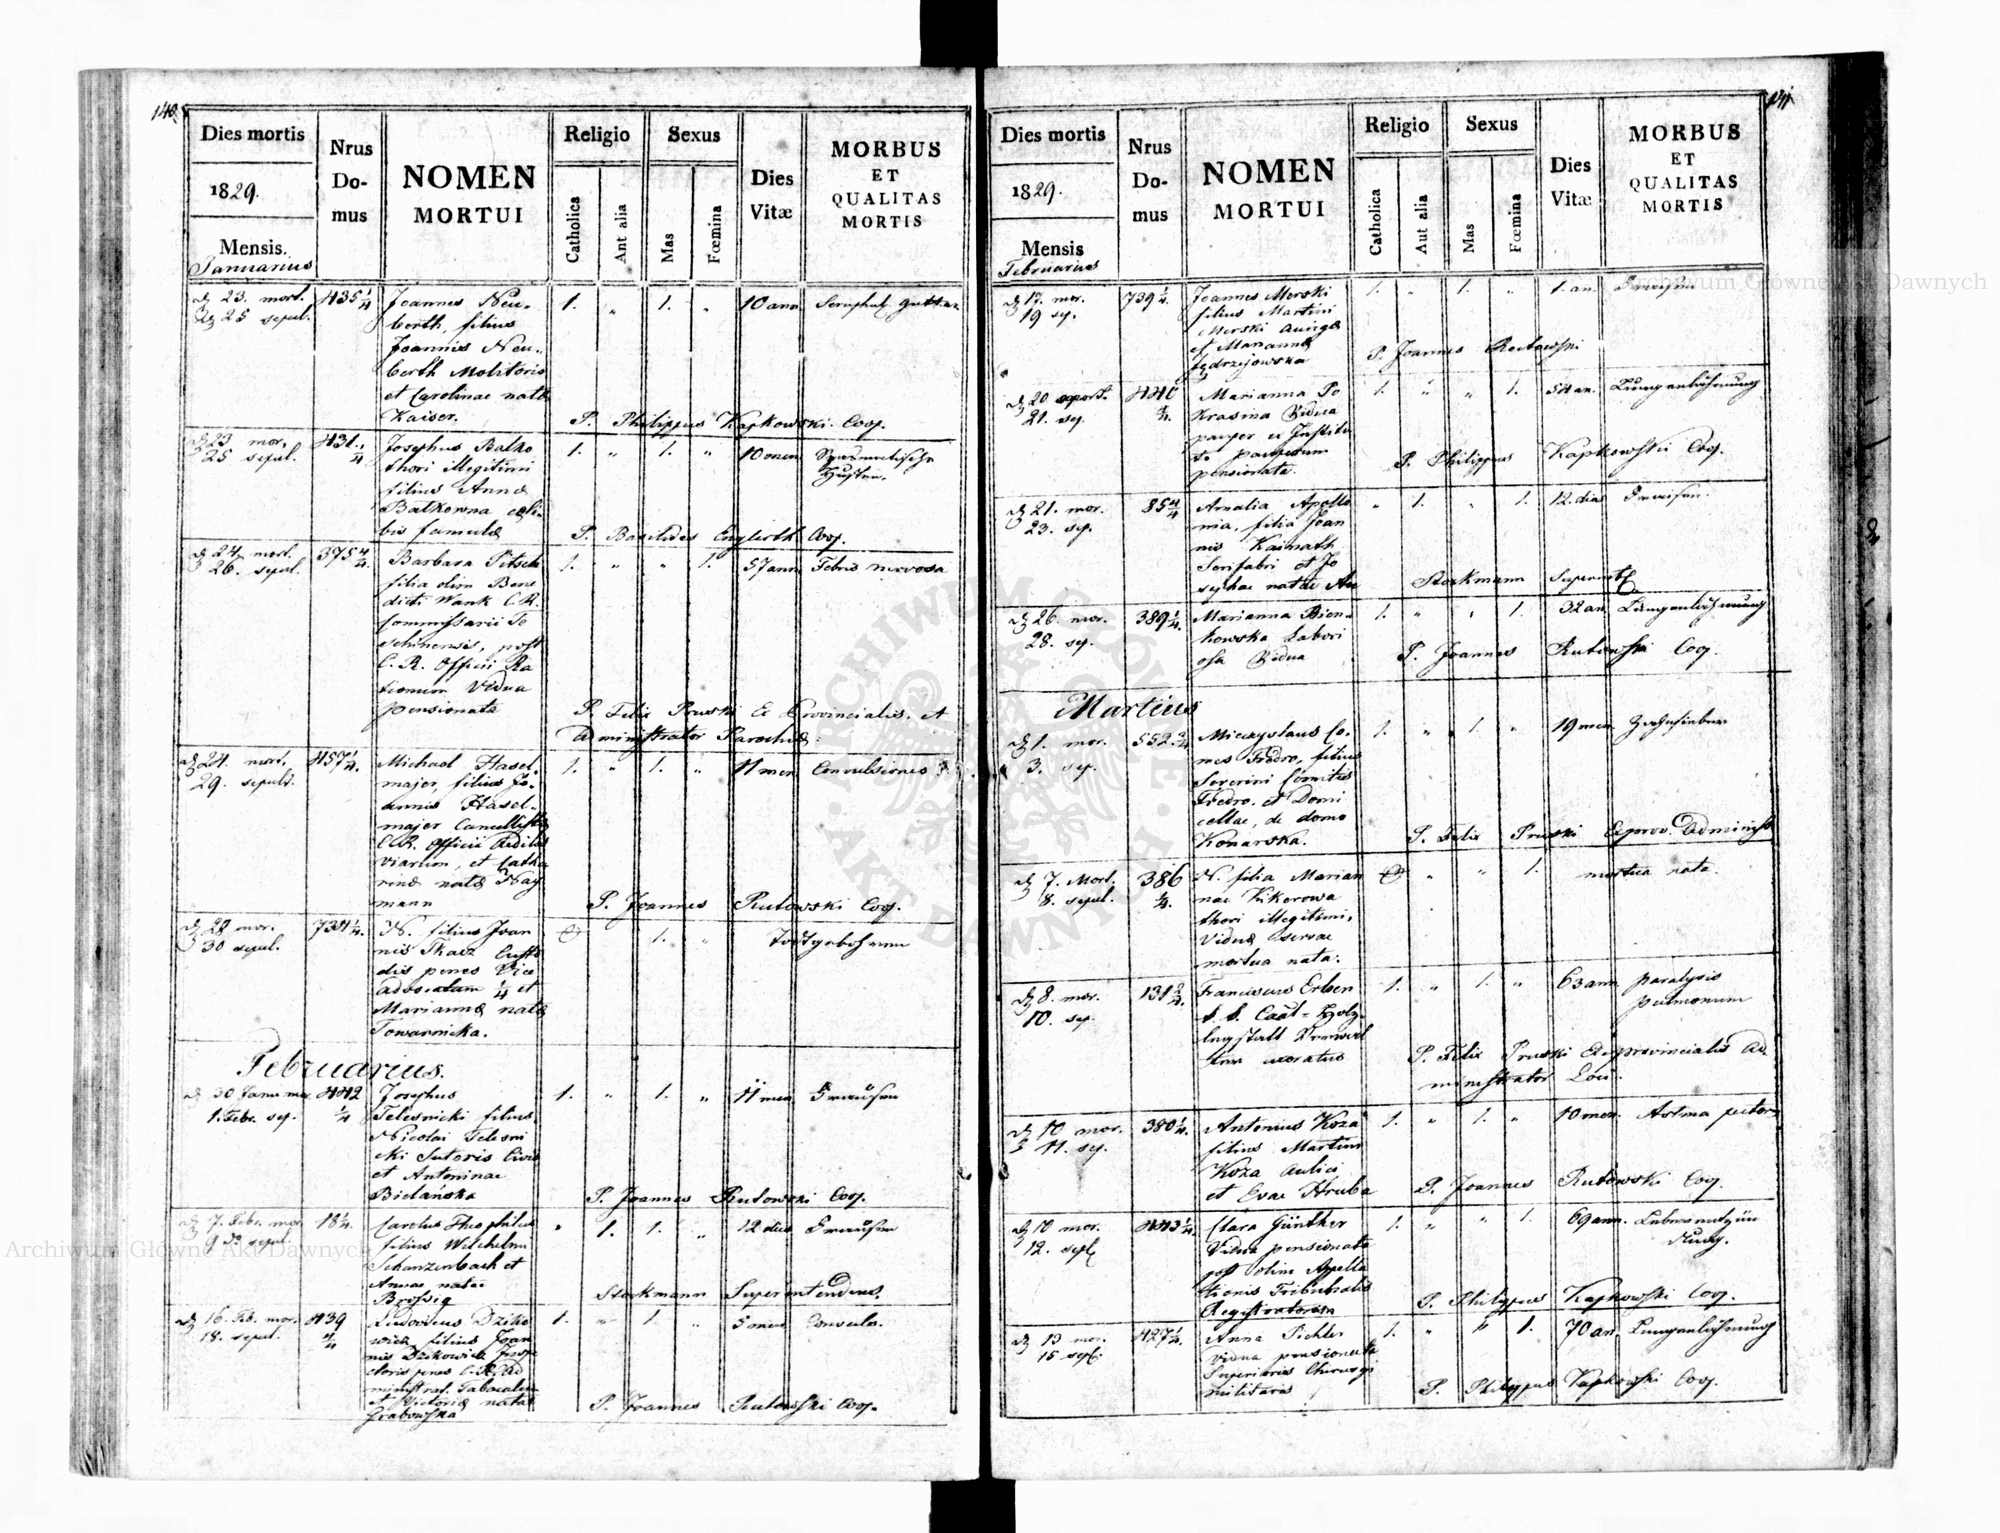 140.
Dies mortis
1829.
Mensis.
Januarius
Nrus
Do-
mus
NOMEN
MORTUI
Religio
Catholica
Aut alia
Sexus
Mas
Fœmina
Dies
Vitæ
MORBUS
ET
QUALITAS
MORTIS
23. mort.
25 sepul.
435 1/4
Joannes Neu-
berth, filius
Joannis Neu-
berth Molitoris
et Carolinae natæ
Kaiser.
1. " 1. "
10 ann
P. Philippus Kapkowski Coop.
23 mor.
25 sepul.
431.
Josephus Balko
thori illegitimi
filius Annæ
Balkowna cæli-
bis famulæ
1. " 1. "
10 men
Husten.
P. Basilides Englerth Coop.
24 mort.
26. sepul.
375 4/4.
Barbara Pitsch
filia olim Bene
dicti Wank C.R.
Commissarii Te
schinensis, post
C.R. Officii Ra
tionum Vidua
pensionata
1. " " 1.
57 ann
Febris nervosa
P. Felix Pruski Ex Provincialis. et
Administrator Parochiæ.
24. mort.
29. sepult.
457 1/4.
Michael Hasel-
majer, filius Jo-
annis Hasel-
majer Cancellistæ
C.R. Officii Ædilis
viarum, et Catha
rinæ natæ Hay
mann
1. " 1. "
11 men
Convulsiones
P. Joannes Rutowski Coop.
28 mor.
30 sepul.
731 1/4.
N. filius Joan
nis Tkacz Custo
dis penes Vice
Advocatum 1/4 et
Mariannæ natæ
Towarnicka.
1. "
Todtgebohrnen
Februarius.
30 Janu mor.
1. Febr. sep.
442
1/4
Josephus
Telesnicki filius
Nicolai Telesni
cki Sutoris Civis
et Antoninae
Bielańska
1. " 1. "
11 men
Fraisen
P. Joannes Rutowski Coop.
7. Febr. mor.
9 do sepul.
18 1/4.
Carolus Theophilus
filius Wilhelmi
Schanzenbach et
Annae natae
Brossig
" 1. 1. "
12 dies
Fraisen
Stockmann Superintendens.
16. Feb. mor.
18. sepul.
439
4/4
Ludovicus Dziko
wicz filius Joan
nis Dzikowicz Inspe
ctoris penes C.R. Ad
ministrat. Tabacalem
et Victoriæ natæ
Grabowska
1. " 1. "
5 men
Convuls.
P. Joannes Rutowski Coop.
141
Dies mortis
1829.
Mensis
Februarius
Nrus
Do-
mus
NOMEN
MORTUI
Religio
Catholica
Aut alia
Sexus
Mas
Fœmina
Dies
Vitæ
MORBUS
ET
QUALITAS
MORTIS
17. mor.
19 sep.
739 1/4.
Joannes Merski
filius Martini
Merski aurigæ
et Mariannæ
Jędrzejowska
1. " 1. "
1. an.
Fraisen
P. Joannes Rutowski
20 mort.
21. sep.
440
Marianna Po
krasina Vidua
pauper ex Institu
to pauperum
pensionata.
1. " " 1.
54 an.
Lungenlähmung
P. Philippus Kapkowski Coop.
21. mor.
23. sep.
85 4/4
Amalia Apollo
nia, filia Joan
nis Kainath
Serifabri et Jo
sephae natae
" 1. " 1.
12. dies
Fraisen.
Stockmann Superint.
26. mor.
28. sep.
389 1/4.
Marianna Bien-
kowska Labori
osa Vidua
1. " " 1.
32 an.
Lungenlähmung
P. Joannes Rutowski Coop.
Martius
1. mor.
3. sep.
552. 3/4
Miecyslaus Co-
mes Fredro, filius
Severini Comitis
Fredro. et Domi
cellae, de domo
Konarska.
1. " 1. "
19 men
Zahnfieber
P. Felix Pruski Exprov. Administ
7. Mort.
8. sepul.
386
N. filia Marian
nae Kukerowa
thori illegitimi,
Viduæ servae
mortua nata.
" " 1.
mortua nata.
8. mor.
10. sep.
131 2/4.
Franciscus Erben
k. k. Caal-Holz-
legstatt
uxoratus
1. " 1. "
63 ann
paralysis
pulmonum
P. Felix Pruski Exprovincialis Ad-
ministrator Loci.
10 mor.
11. sep.
380 1/4.
Antonius Koza
filius Martini
Koza aulici
et Evae Hruba
1. " 1. "
10 men.
Astma
P. Joannes Rutowski Coop.
10 mor.
12. sep.
443 1/4.
Clara Günther
Vidua pensionata
post olim Appella
tionis Tribunalis
Registratorem
1. " " 1.
69 ann.
P. Philippus Kapkowski Coop.
13 mor.
15 sep.
427 1/4.
Anna Pichler
Vidua pensionata
Superioris Chirurgi
militaris
1. " " 1.
70 an.
Lungenlähmung
P. Philippus Kapkowski Coop.
Archiwum Główne Akt Dawnych
ARCHIWUM GŁÓWNE AKT DAWNYCH
Archiwum Główne Akt Dawnych